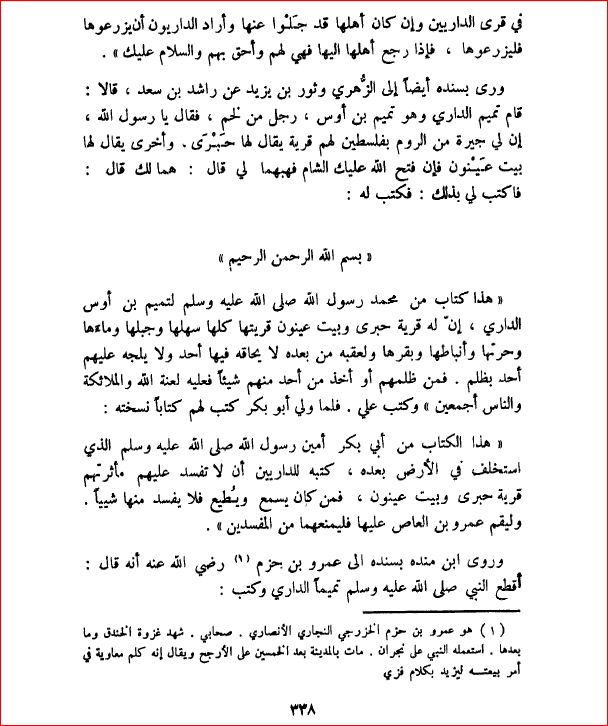 في قرى الداريين وإن كان أهلها قد جَلَوا عنها وأراد الداريون أن يزرعوها
فليزرعوها ، فإذا رجع أهلها اليها فهي لهم وأحق بهم والسلام عليك » .
ورى بسنده أيضاً إلى الزُّهري وثور بن يزيد عن راشد بن سعد ، قالا :
قام تميم الداري وهو تميم بن أوس ، رجل من لخم ، فقال يا رسول الله ،
إن لي جيرة من الروم بفلسطين لهم قرية يقال لها حَبْرَى . وأخرى يقال لها
بيت عَيْنون فإن فتح الله عليك الشام فهبهما لي قال : هما لك قال :
فاكتب لي بذلك : فكتب له :
« بسم الله الرحمن الرحيم »
« هذا كتاب من محمد رسول الله صلى الله عليه وسلم لتميم بن أوس
الداري ، إنّ له قرية حبرى وبيت عينون قريتها كلها سهلها وجبلها وماءها
وحرتها وأنباطها وبقرها ولعقبه من بعده لا يحاقه فيها أحد ولا يلجه عليهم
أحد بظلم . فمن ظلمهم أو أخذ من أحد منهم شيئاً فعليه لعنة الله والملائكة
والناس أجمعين » وكتب علي . فلما ولي أبو بكر كتب لهم كتاباً نسخته :
« هذا الكتاب من أبي بكر أمين رسول الله صلى الله عليه وسلم الذي
استخلف في الأرض بعده ، كتبه للداريين أن لا تفسد عليهم مأثرتهم
قرية حبرى وبيت عينون ، فمن كان يسمع ويُطيع فلا يفسد منها شيياً .
وليقم عمرو بن العاص عليها فليمنعهما من المفسدين » .
وروى ابن منده بسنده الى عمرو بن حزم (١) رضي الله عنه أنه قال :
أقطع النبي صلى الله عليه وسلم تميماً الداري وكتب :
(١) هو عمرو بن حزم الخزرجي النجاري الأنصاري . صحابي . شهد غزوة الخندق وما
بعدها . استعمله النبي على نجران . مات بالمدينة بعد الخمسين على الأرجح ويقال إنه كلم معاوية في
أمر بيعته ليزيد بكلام قزي
٣٣٨